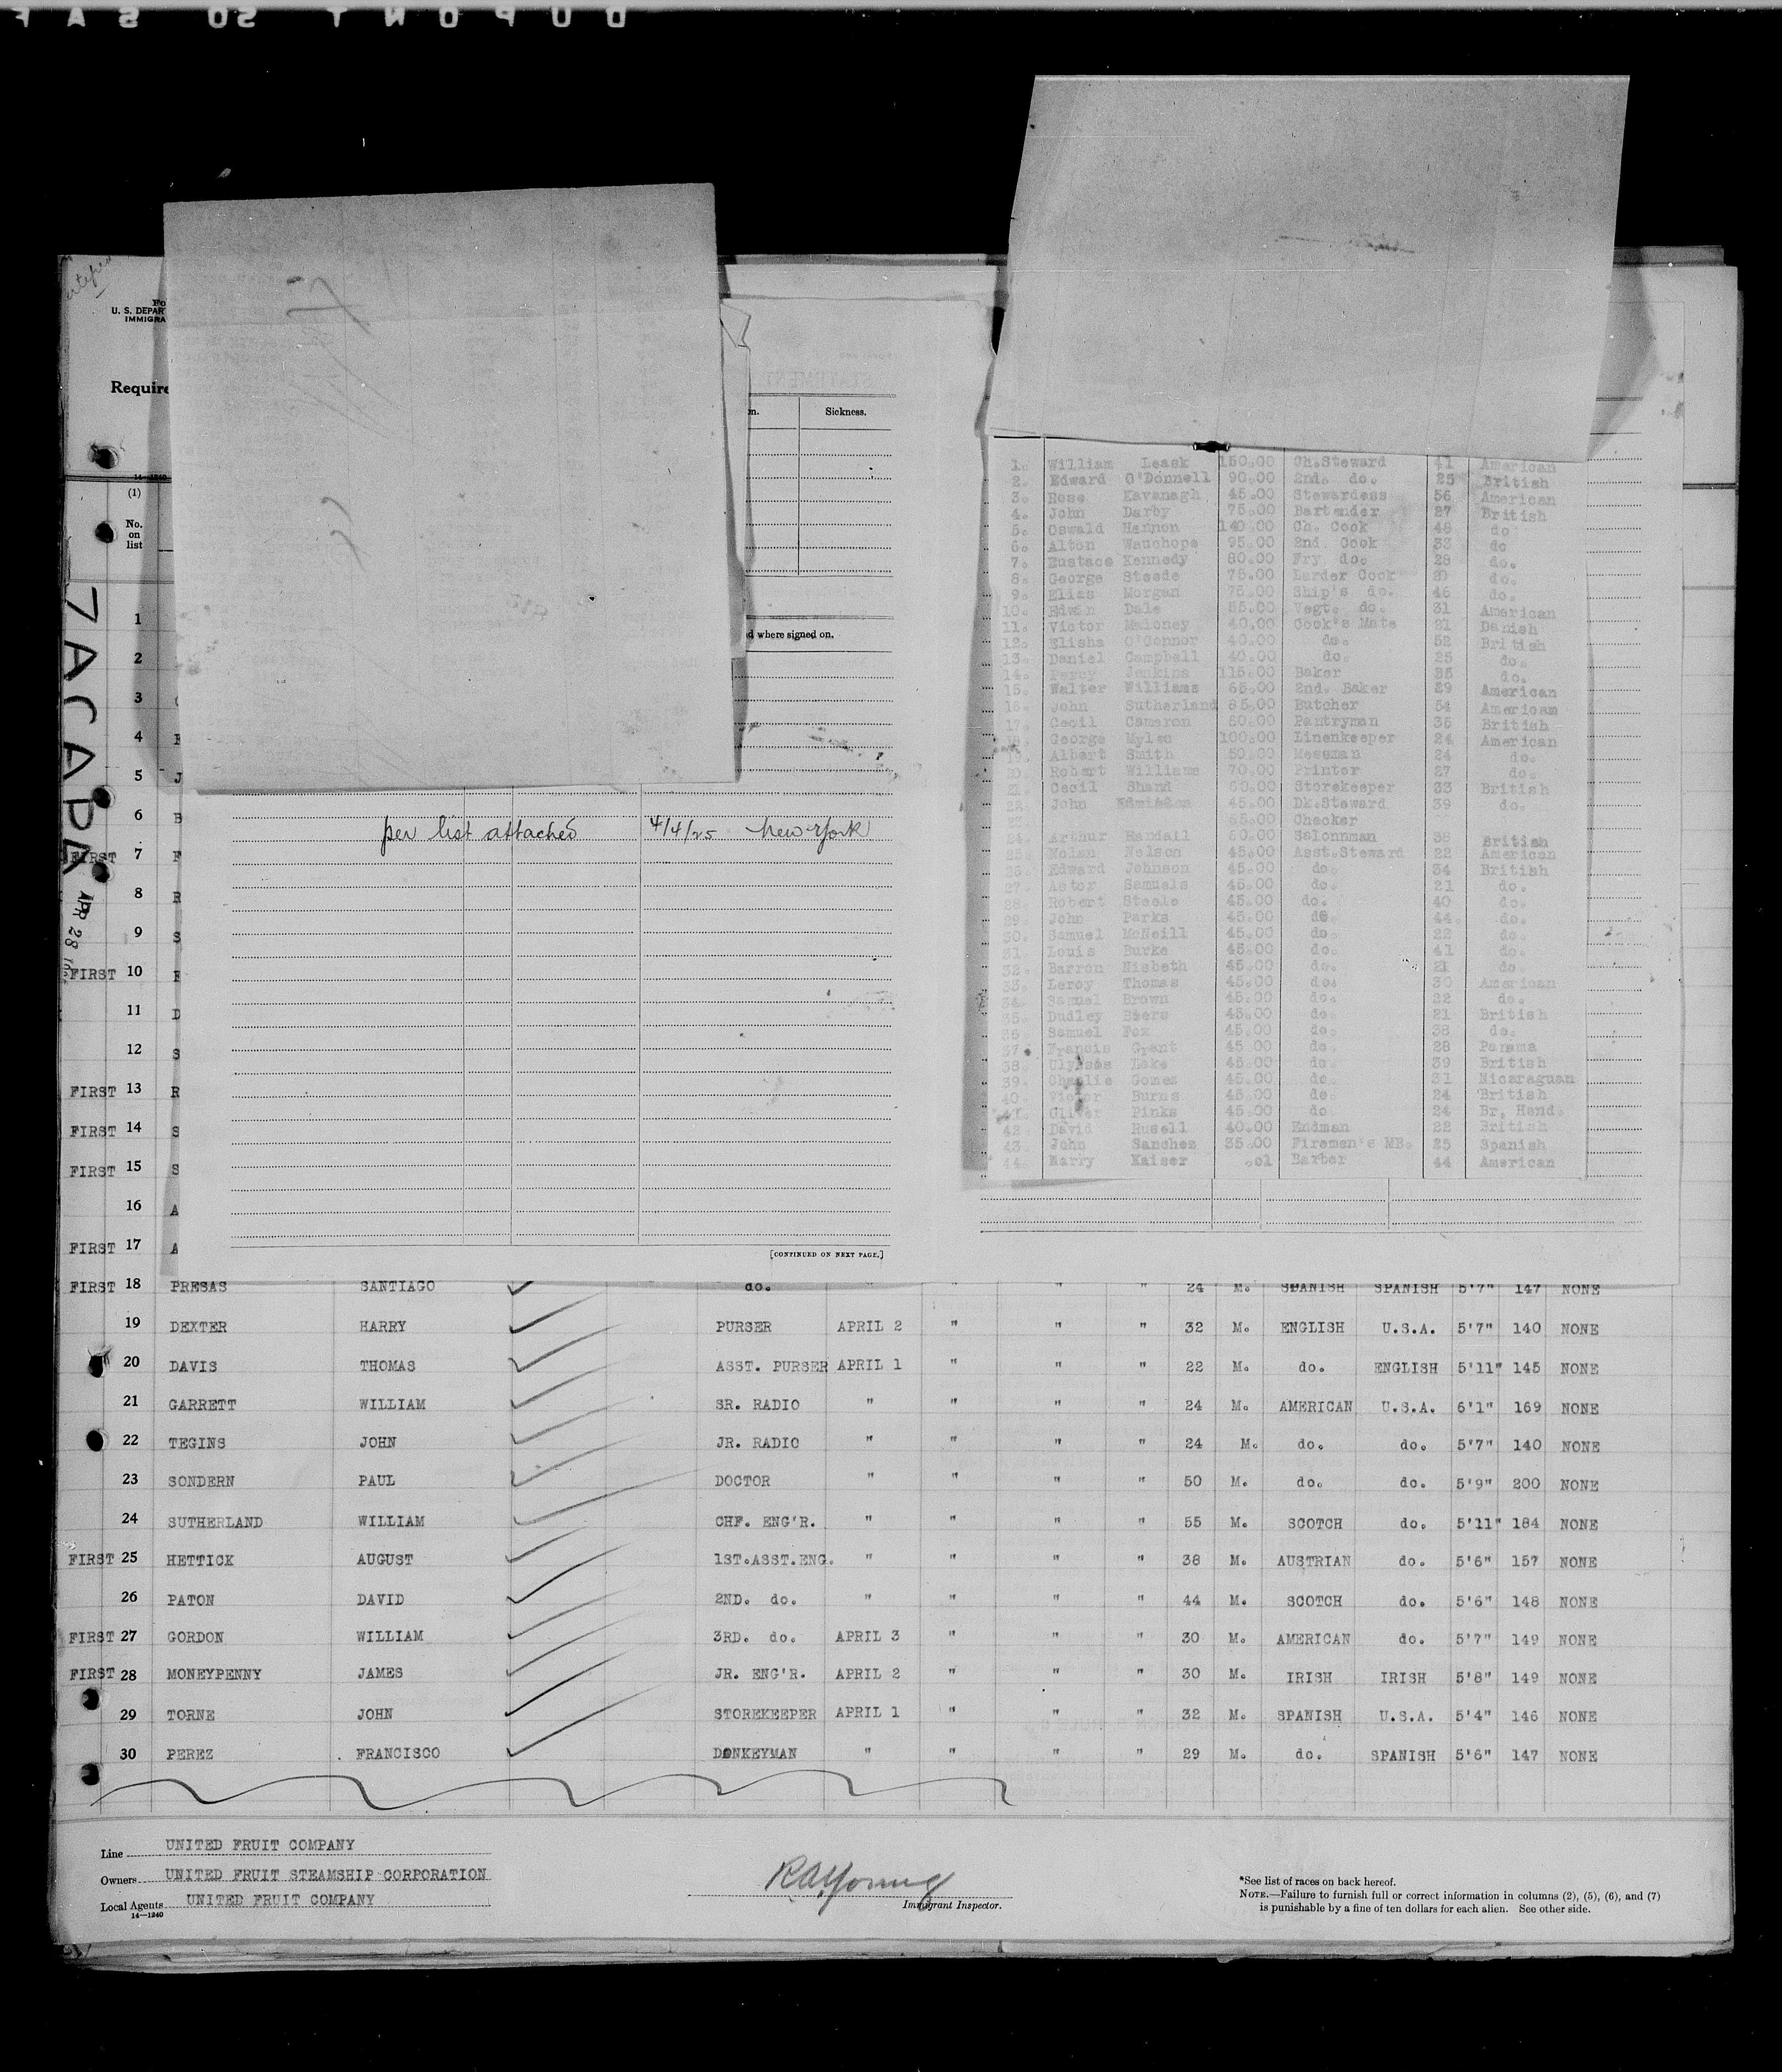 Fo
U. S. DEPAR
IMMIGRA
Require
14—1240
(1)
No.
on
list
ZACAPA APR 28
on. Sickness.
d where signed on.
per list attached 4/4/25 New York
[CONTINUED ON NEXT PAGE.]
1. William Leask 150.00 Ch.Steward 41 American
2. Edward O'Donnell 90.00 2nd. do. 25 British
3. Rose Kavanagh 45.00 Stewardess 56 American
4. John Darby 75.00 Bartender 27 British
5. Oswald Hannon 140.00 Ch. Cook 48 do
6. Alton Wauchope 95.00 2nd. Cook 33 do
7. Eustace Kennedy 80.00 Fry do. 28 do.
8. George Steede 75.00 Larder Cook do.
9. Elias Morgan 75.00 Ship's do. 46 do.
10. Edwin Dale 55.00 Vegt. do. 31 American
11. Victor Maloney 40.00 Cook's Mate 21 Danish
12. Elisha O'Connor 40.00 do. 52 British
13. Daniel Campbell 40.00 do. 25 do.
14. Percy Jenkins 115.00 Baker 35 do.
15. Walter Williams 65.00 2nd. Baker 29 American
16. John Sutherland 85.00 Butcher 54 American
17. Cecil Cameron 60.00 Pantryman 35 British
George Myles 100.00 Linenkeeper 24 American
19. Albert Smith 50.00 Messman 24 do.
20. Robert Williams 70.00 Printer 27 do.
21. Cecil Shand 60.00 Storekeeper 33 British
22. John 45.00 Dk.Steward 39 do.
23. 55.00 Checker
24. Arthur Randall 50.00 Salonnman 38 British
25. Nolan Nelson 45.00 Asst.Steward 22 American
26. Edward Johnson 45.00 do. 34 British
27. Astor Samuels 45.00 do. 21 do.
28. Robert Steele 45.00 do. 40 do.
29. John Parks 45.00 do. 44. do.
30. Samuel McNeill 45.00 do. 22 do.
31. Louis Burke 45.00 do. 41 do.
32. Barron Nisbeth 45.00 do. 21 do
33. Leroy Thomas 45.00 do. 30 American
34. Samuel Brown 45.00 do. 22 do.
35. Dudley Beers 45.00 do. 21 British
36. Samuel Fox 45.00 do. 38 do.
37. Francis Grant 45.00 do. 28 Panama
38. Ulysses Lake 45.00 do. 39 British
39. Charlie Gomes 45.00 do. 31 Nicaraguan
40. Victor Burns 45.00 do 24 British
41. Oliver Pinks 45.00 do 24 Br. Hond.
42. David Rusell 40.00 Endman 22 British
43. John Sanchez 35.00 Firemen's MB. 25 Spanish
44. Harry Kaiser .01 Barber 44 American
1
2
3
4
5 J
6 B
FIRST 7 F
8 R
9 S
FIRST 10
11 D
12 S
FIRST 13 R
FIRST 14 S
FIRST 15 S
16 A
FIRST 17 A
FIRST 18 PRESAS SANTIAGO do. " " " 24 M. SPANISH SPANISH 5'7" 147 NONE
19 DEXTER HARRY PURSER APRIL 2 " " " 32 M. ENGLISH U.S.A. 5'7" 140 NONE
20 DAVIS THOMAS ASST. PURSER APRIL 1 " " " 22 M. do. ENGLISH 5'11" 145 NONE
21 GARRETT WILLIAM SR. RADIO " " " " 24 M. AMERICAN U.S.A. 6'1" 169 NONE
22 TEGINS JOHN JR. RADIO " " " " 24 M. do. do. 5'7" 140 NONE
23 SONDERN PAUL DOCTOR " " " " 50 M. do. do. 5'9" 200 NONE
24 SUTHERLAND WILLIAM CHF. ENG'R. " " " " 55 M. SCOTCH do. 5'11" 184 NONE
FIRST 25 HETTICK AUGUST 1ST.ASST.ENG. " " " " 38 M. AUSTRIAN do. 5'6" 157 NONE
26 PATON DAVID 2ND. do. " " " " 44 M. SCOTCH do. 5'6" 148 NONE
FIRST 27 GORDON WILLIAM 3RD. do. APRIL 3 " " " 30 M. AMERICAN do. 5'7" 149 NONE
FIRST 28 MONEYPENNY JAMES JR. ENG'R. APRIL 2 " " " 30 M. IRISH IRISH 5'8" 149 NONE
29 TORNE JOHN STOREKEEPER APRIL 1 " " " 32 M. SPANISH U.S.A. 5'4" 146 NONE
30 PEREZ FRANCISCO DONKEYMAN " " " " 29 M. do. SPANISH 5'6" 147 NONE
Line UNITED FRUIT COMPANY
Owners UNITED FRUIT STEAMSHIP CORPORATION
Local Agents UNITED FRUIT COMPANY
14—1240
R A Young
Immigrant Inspector.
*See list of races on back hereof.
NOTE.—Failure to furnish full or correct information in columns (2), (5), (6), and (7)
is punishable by a fine of ten dollars for each alien. See other side.